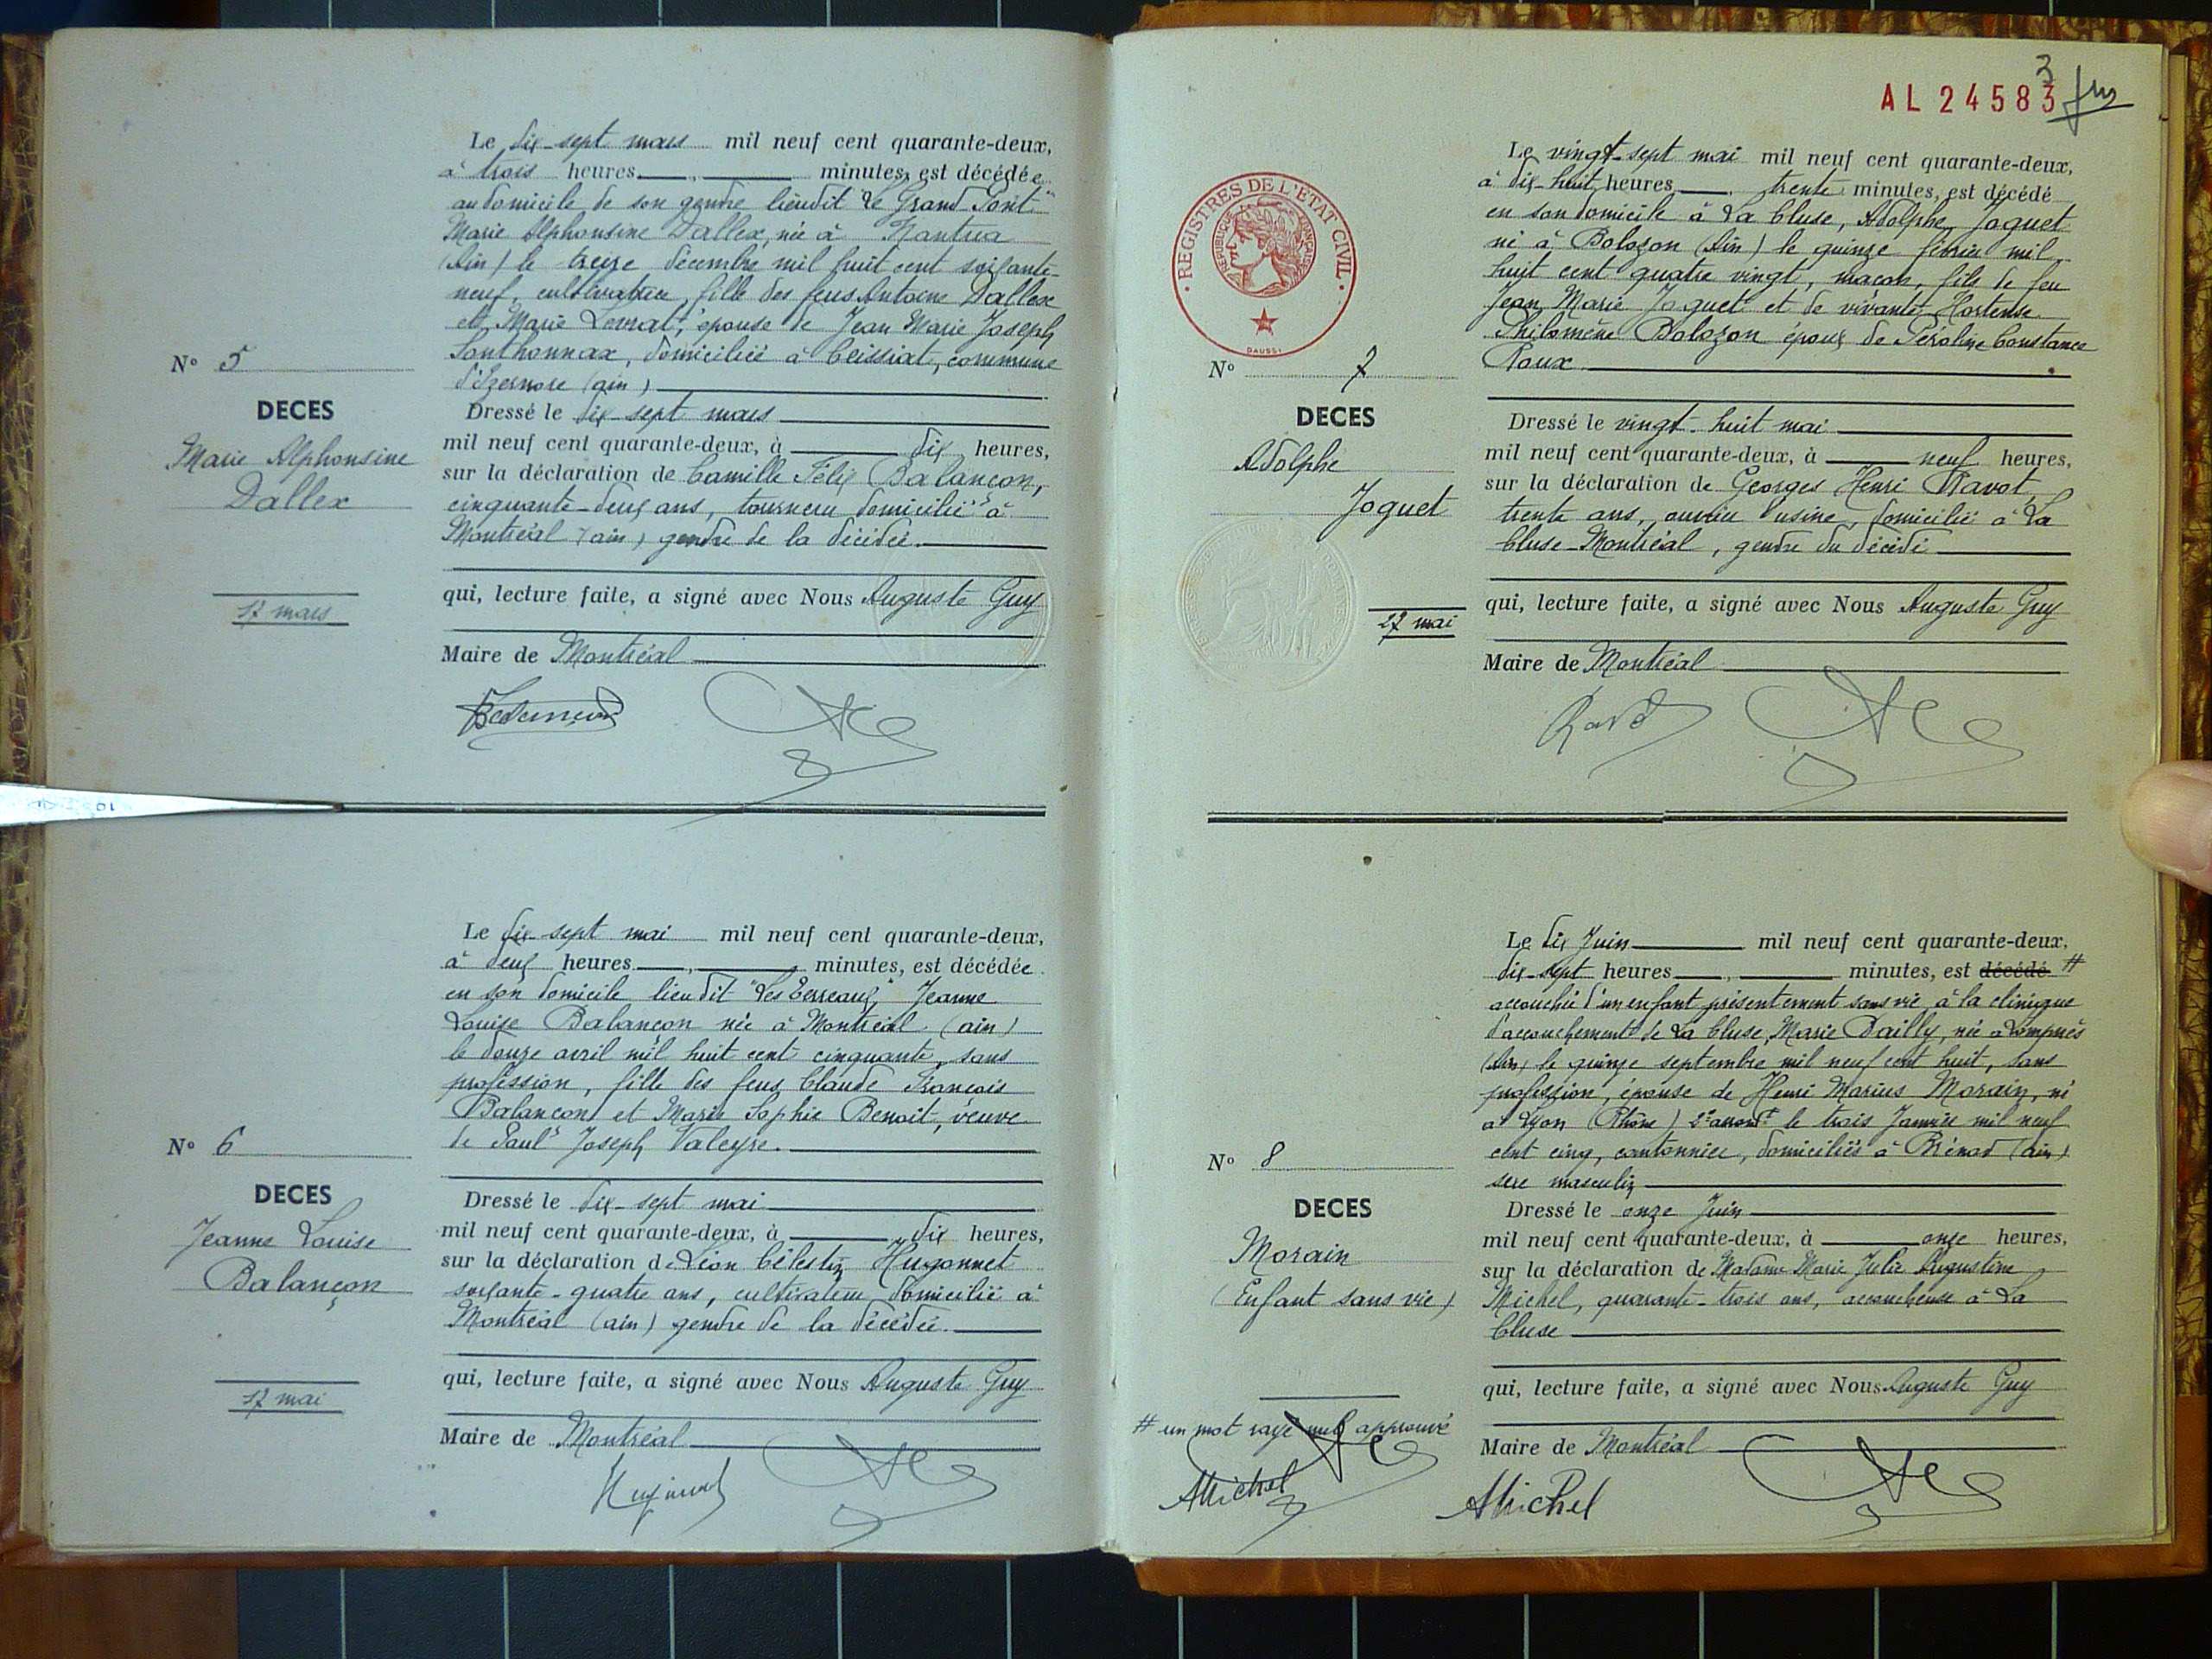 Le dix-sept mars mil neuf cent quarante-deux,
à trois heures, minutes, est décédée
au domicile de son gendre lieudit "Le Grand Pont"
Marie Alphonsine Dallex, née à Nantua
(Ain) le treize décembre mil huit cent soixante-
neuf, cultivatrice, fille des feus Antoine Dallex
et Marie Levrat, épouse de Jean Marie Joseph
Sonthonnax, domiciliée à Ceissiat, commune
d'Izernore (ain)
N° 5
DECES
Marie Alphonsine
Dallex
17 mars
Dressé le dix-sept mars
mil neuf cent quarante-deux, à dix heures,
sur la déclaration de Camille Félix Balançon,
cinquante-deux ans, tourneur domicilié à
Montréal (ain) gendre de la décédée.
qui, lecture faite, a signé avec Nous Auguste Guy
Maire de Montréal
Le dix-sept mai mil neuf cent quarante-deux,
à deux heures, minutes, est décédée
en son domicile lieudit "Les Terreaux", Jeanne
Louise Balançon née à Montréal (ain)
le douze avril mil huit cent cinquante, sans
profession, fille des feus Claude François
Balançon et Marie Sophie Benoit, veuve
de Paul Joseph Valeyre.
N° 6
DECES
Jeanne Louise
Balançon
17 mai
Dressé le dix-sept mai
mil neuf cent quarante-deux, à dix heures,
sur la déclaration de Léon Célestin Hugonnet
soixante-quatre ans, cultivateur domicilié à
Montréal (ain) gendre de la décédée.
qui, lecture faite, a signé avec Nous Auguste Guy
Maire de Montréal
3
AL 24583
REGISTRES DE L'ETAT CIVIL
REPUBLIQUE FRANÇAISE
DAUSSI
Le vingt-sept mai mil neuf cent quarante-deux,
à dix-huit heures, trente minutes, est décédé
en son domicile à La Cluse, Adolphe Joguet
né à Bolozon (Ain) le quinze février mil
huit cent quatre vingt, maçon, fils de feu
Jean Marie Joguet et de vivante Hortense
Philomène Bolozon époux de Péroline Constance
Roux.
N° 7
DECES
Adolphe
Joguet
27 mai
Dressé le vingt-huit mai
mil neuf cent quarante-deux, à neuf heures,
sur la déclaration de Georges Henri Ravot,
trente ans, ouvrier usine, domicilié à La
Cluse-Montréal, gendre du décédé
qui, lecture faite, a signé avec Nous Auguste Guy
Maire de Montréal
Le dix Juin mil neuf cent quarante-deux,
dix-sept heures, minutes, est décédé #
accouchée d'un enfant présentement sans vie à la clinique
d'accouchement de La Cluse, Marie Dailly, née à Lompnès
(Ain) le quinze septembre mil neuf cent huit, sans
profession, épouse de Henri Marius Morain, né
à Lyon (Rhône) 2e arrondt le trois Janvier mil neuf
cent cinq, cantonnier, domiciliés à Brénod (ain)
sexe masculin
N° 8
DECES
Morain
(Enfant sans vie)
Dressé le onze Juin
mil neuf cent quarante-deux, à onze heures,
sur la déclaration de Madame Marie Julie Augustine
Michel, quarante-trois ans, accoucheuse à La
Cluse
qui, lecture faite, a signé avec Nous Auguste Guy
Maire de Montréal
# un mot rayé nul approuvé
AMichel
AMichel